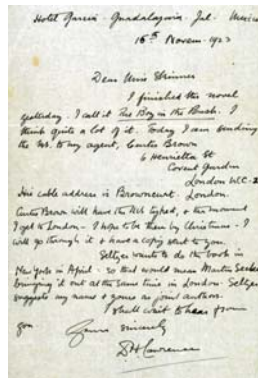 Hotel Garcia - Guadalajara - Jal - Mexico
15th Novem. 1923
Dear Miss Skinner
I finished the novel
yesterday. I call it The Boy in the Bush. I
think quite a lot of it. Today I am sending
the MS. to my agent, Curtis Brown
6 Henrietta St
Covent Garden
London W.C. 2
His cable address is Browncurt. London.
Curtis Brown will have the MS typed, & the moment
I get to London - I hope to be there by Christmas - I
will go through it & have a copy sent to you.
Seltzer wants to do the book in
New York in April - so that would mean Martin Secker
bringing it out at the same time in London. Seltzer
suggests my name & yours as joint authors.
I shall wait to hear from
you
Yours Sincerely
D H Lawrence